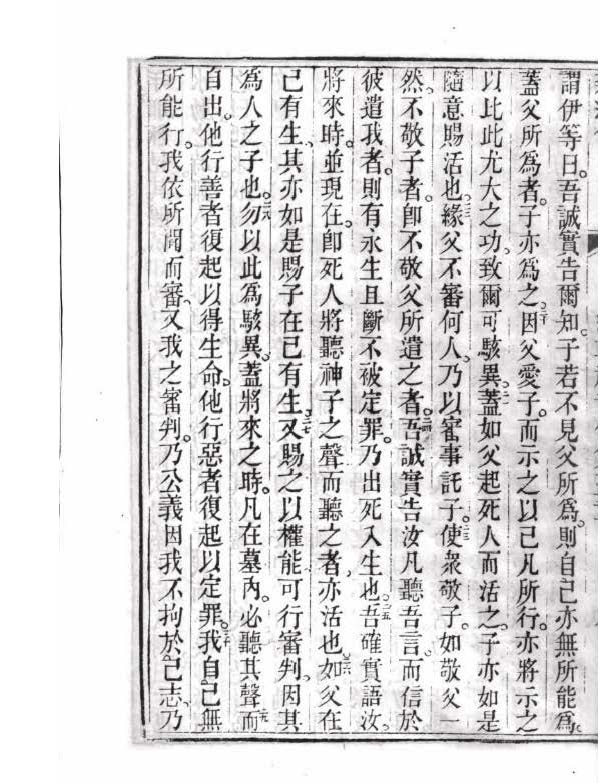 謂伊等曰。吾誠實告爾知。子若不見父所爲。則自己亦無所能爲。
蓋父所爲者。子亦爲之。二十因父愛子。而示之以己凡所行。亦將示之
以比此尤大之功。致爾可駭異。二一蓋如父起死人而活之。子亦如是
隨意賜活也。二二緣父不審何人。乃以審事託子。二三使衆敬子。如敬父一
然。不敬子者。卽不敬父所遣之者。二四吾誠實告汝凡聽吾言。而信於
彼遣我者。則有永生且斷不被定罪。乃出死入生也。二五吾確實語汝。
將來時。並現在。卽死人將聽神子之聲而聽之者。亦活也。二六如父在
己有生。其亦如是賜子在己有生。二七又賜之以權能可行審判。因其
爲人之子也。二八勿以此爲駭異。蓋將來之時。凡在墓內。必聽其聲而二九
自出。他行善者復起以得生命。他行惡者復起以定罪。三十我自己無
所能行。我依所聞而審。又我之審判。乃公義因我不拘於己志。乃